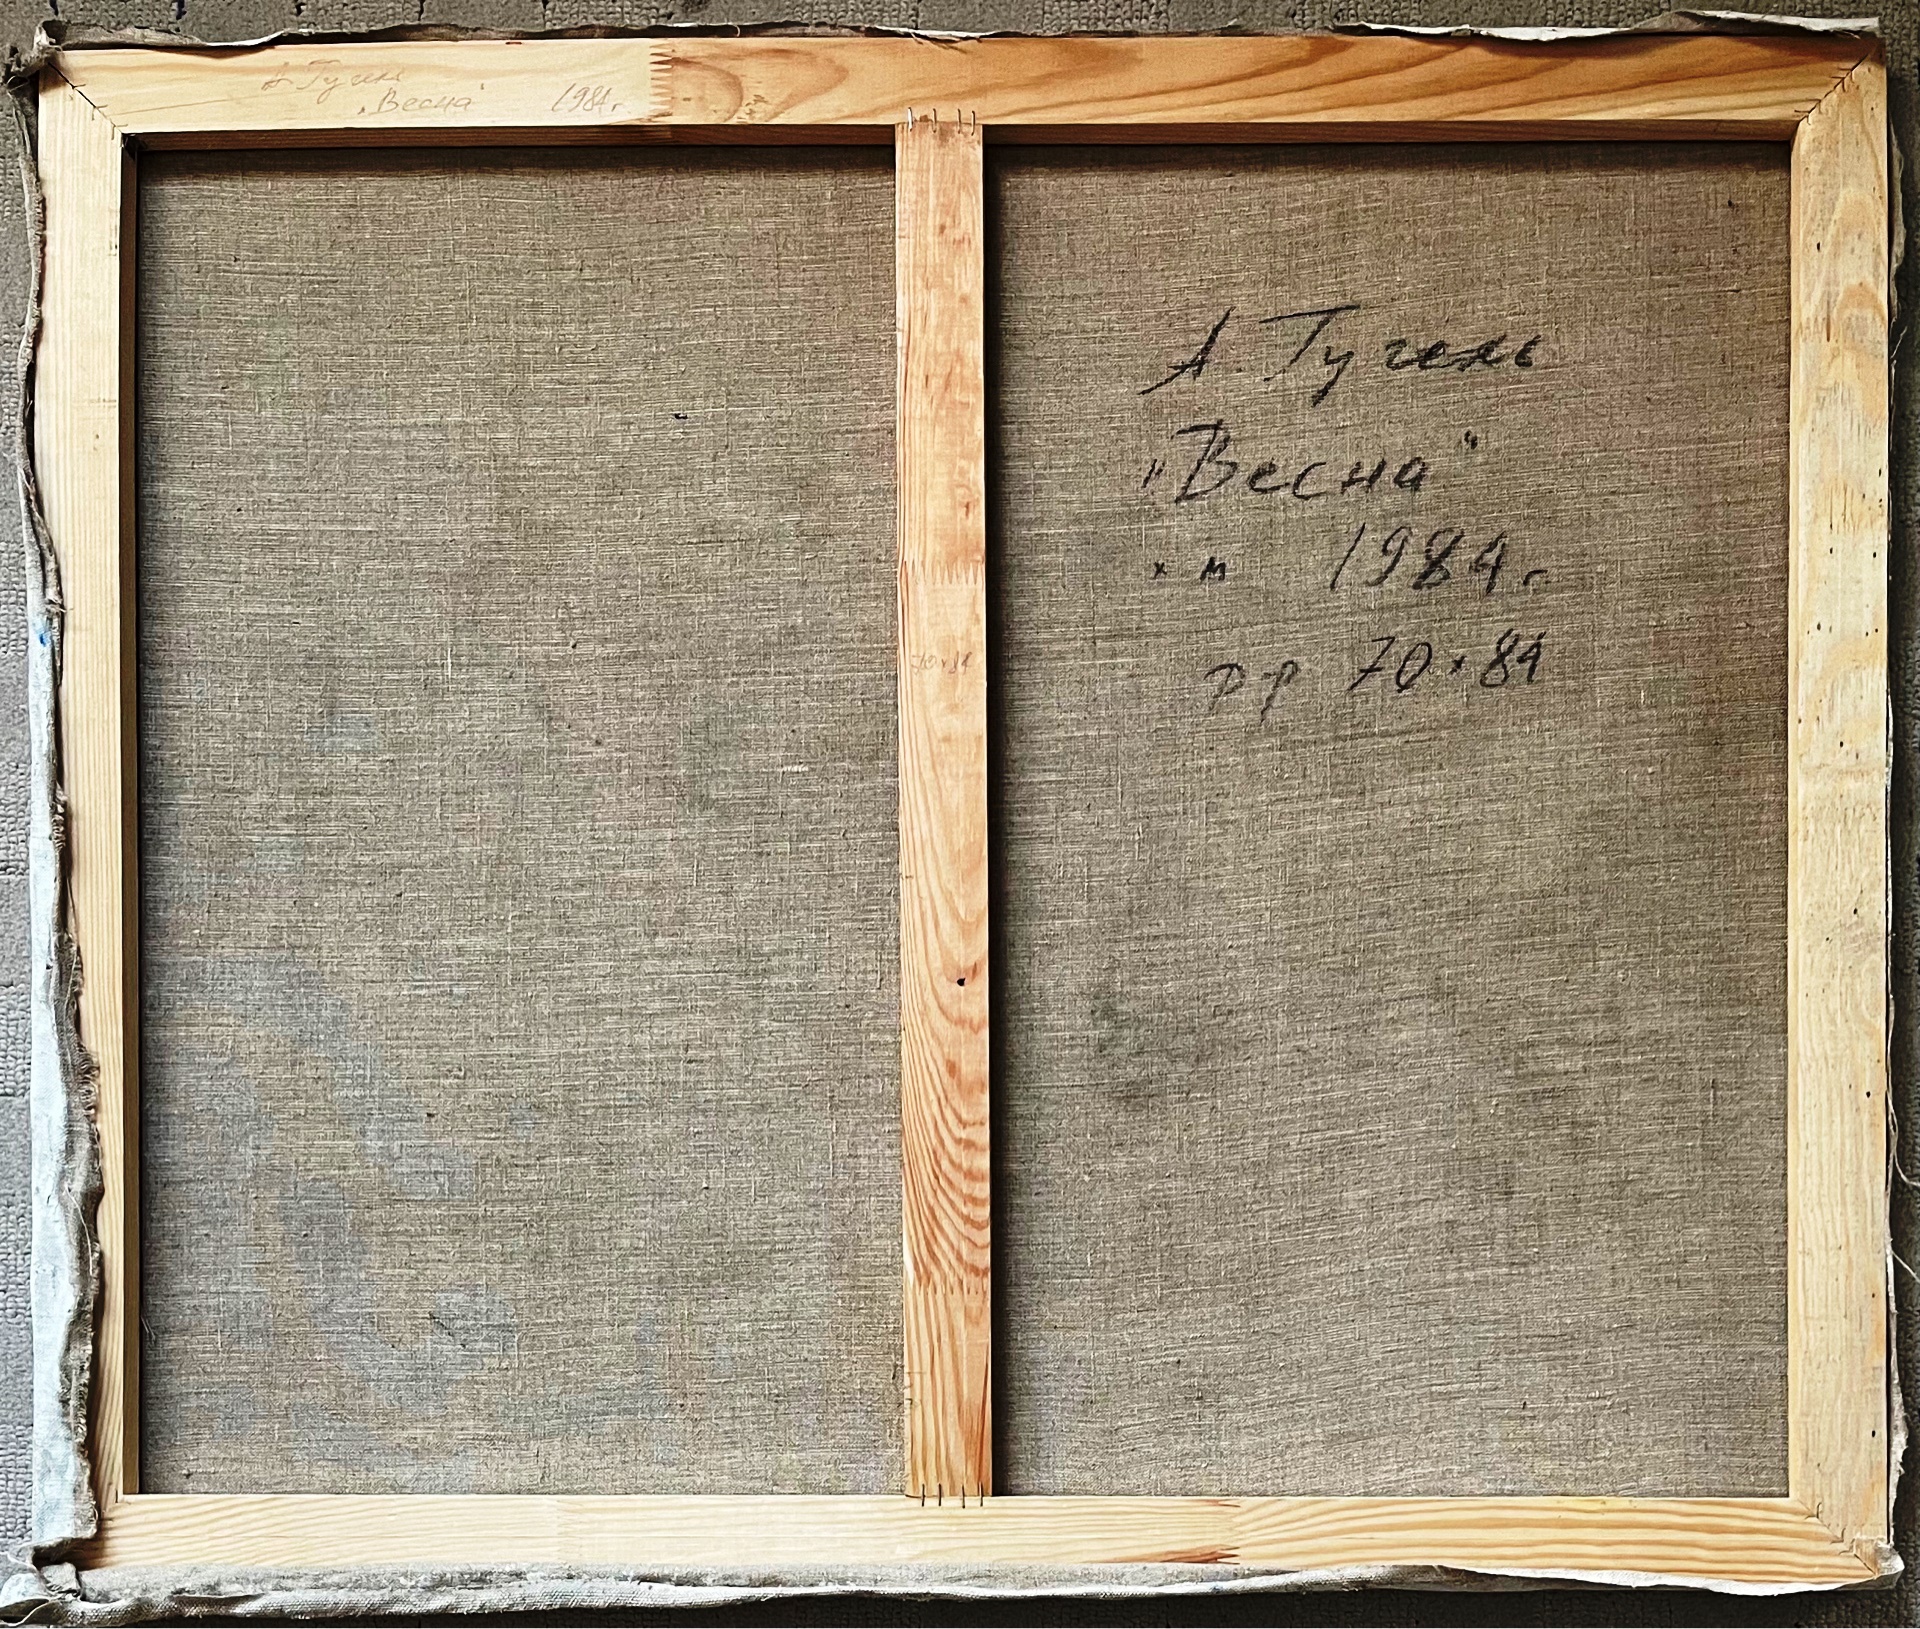 А Гугель
„Весна" 1984г
А. Гугель
"Весна"
х м 1984г
р-р 70×84
70×84